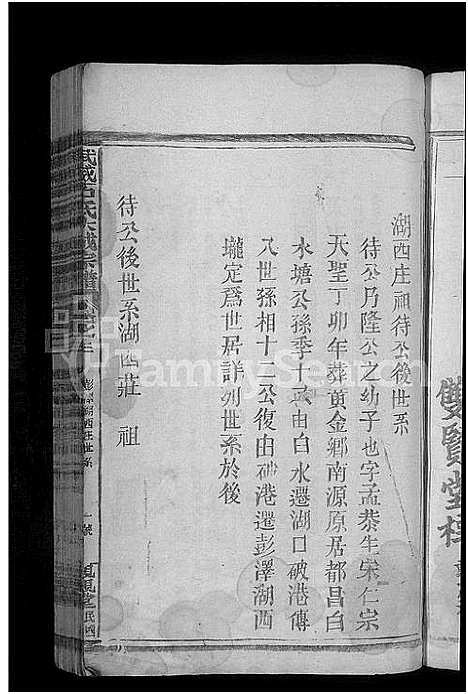 湖西庄祖待公後世系
待公乃隆公之幼子也字孟恭生宋仁宗
天聖丁卯年葬黃金鄉南源原居都昌白
水塘公孫季十武由白水遷湖口破港傳
八世孫相十二公復由破港遷彭澤湖西
壠定爲世居詳列世系於後
待公後世系湖西莊祖
武威石氏大成宗譜
彭澤湖西庄世系
民國
雙賢堂
FamilySearch